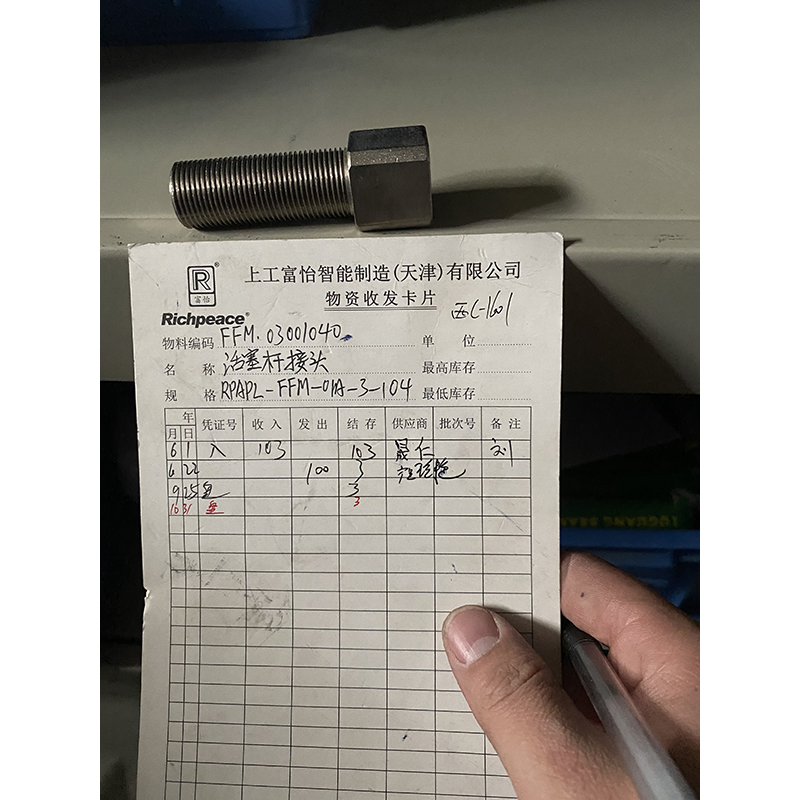 上工富怡智能制造(天津)有限公司
R
富怡
物资收发卡片
Richpeace®
西C-1601
物料编码 FFM.03001040 单 位
名 称 活塞杆接头 最高库存
规 格 RPAPL-FFM-01A-3-104 最低库存
年 月 日 凭证号 收入 发出 结存 供应商 批次号 备注
6 1 入 103 103 晟仁 刘
6 22 100 3
9 25 盘 3
10 31 盘 3